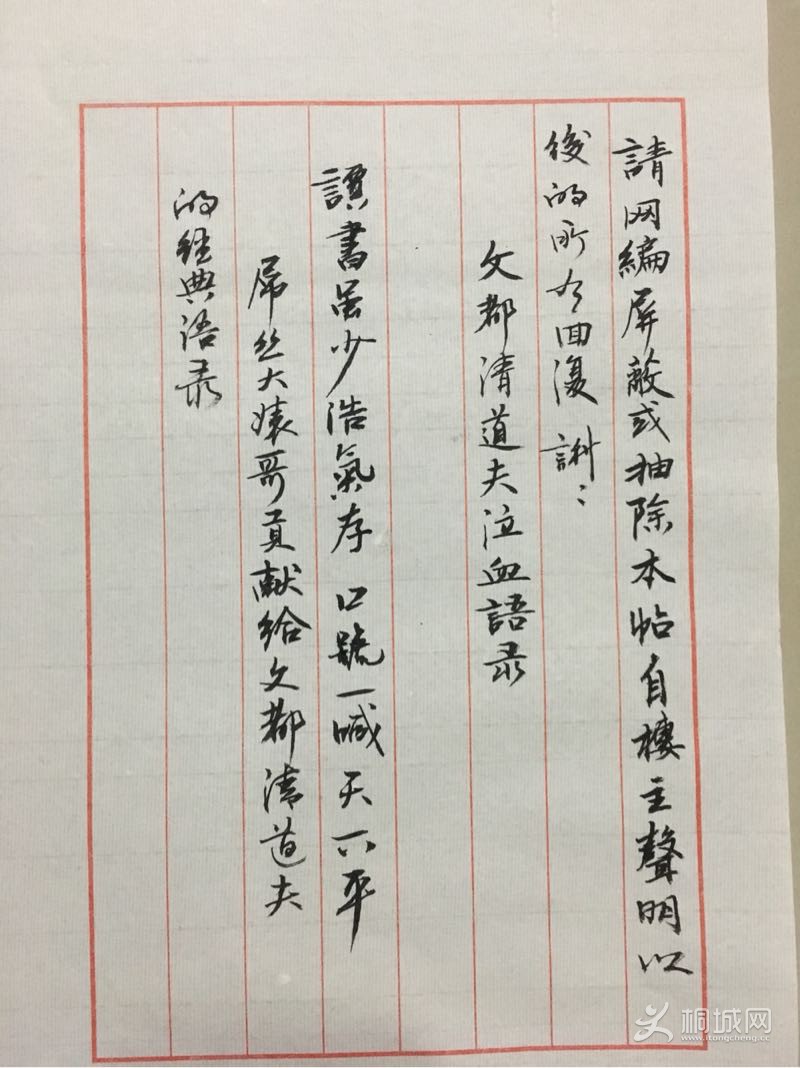 請网編屏蔽或抽除本帖自樓主聲明以
後的所有回復 謝〻
文都清道夫泣血語录
讀書虽少浩氣存 口號一喊天下平
屌丝大婊哥貢献给文都清道夫
的经典语录
桐城网
www.itongcheng.cc